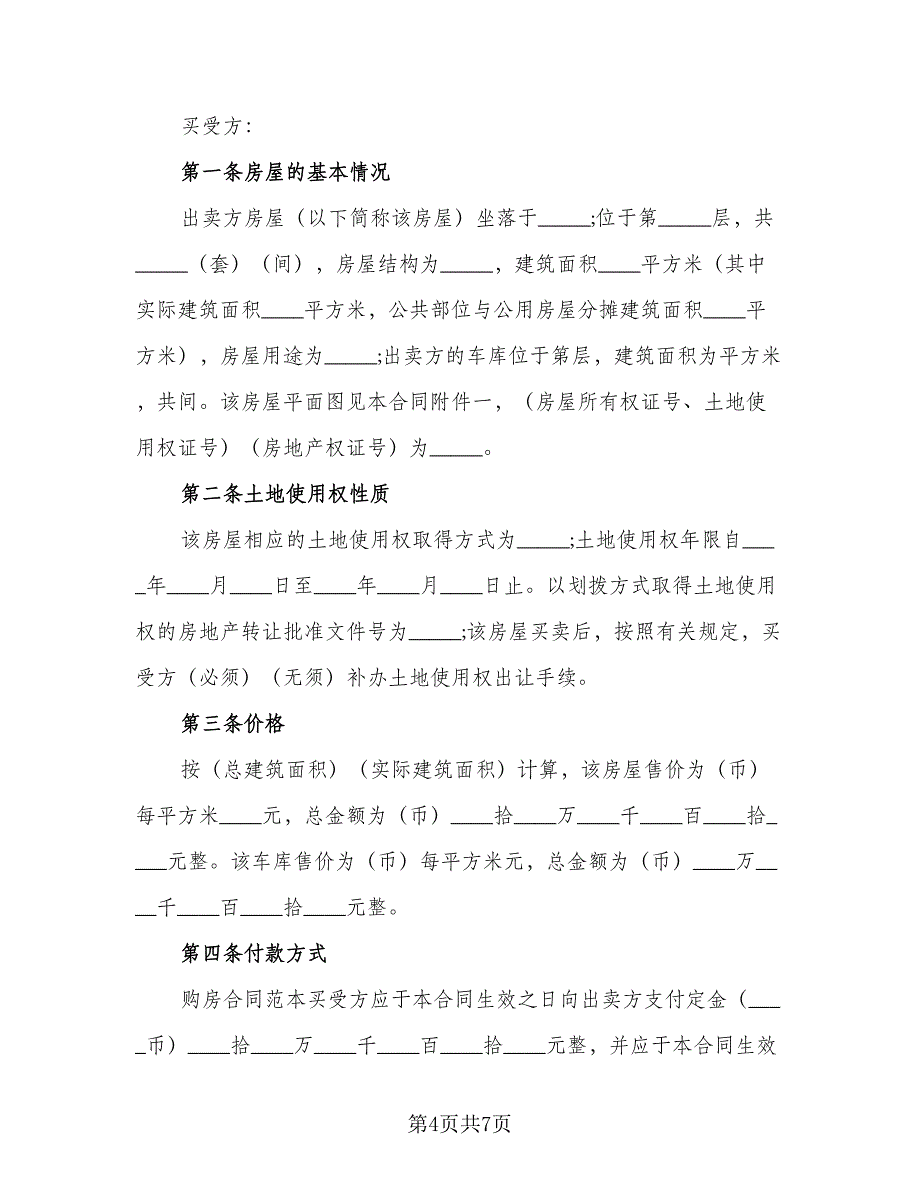 买受方：
第一条房屋的基本情况
出卖方房屋（以下简称该房屋）坐落于_____;位于第_____层，共
_____（套）（间），房屋结构为_____，建筑面积____平方米（其中
实际建筑面积____平方米，公共部位与公用房屋分摊建筑面积____平
方米），房屋用途为_____;出卖方的车库位于第层，建筑面积为平方米
，共间。该房屋平面图见本合同附件一，（房屋所有权证号、土地使
用权证号）（房地产权证号）为_____。
第二条土地使用权性质
该房屋相应的土地使用权取得方式为_____;土地使用权年限自___
_年____月____日至____年____月____日止。以划拨方式取得土地使用
权的房地产转让批准文件号为_____;该房屋买卖后，按照有关规定，买
受方（必须）（无须）补办土地使用权出让手续。
第三条价格
按（总建筑面积）（实际建筑面积）计算，该房屋售价为（币）
每平方米____元，总金额为（币）____拾____万____千____百____拾_
___元整。该车库售价为（币）每平方米元，总金额为（币）____万__
__千____百____拾____元整。
第四条付款方式
购房合同范本买受方应于本合同生效之日向出卖方支付定金（___
_币）____拾____万____千____百____拾____元整，并应于本合同生效
第4页共7页